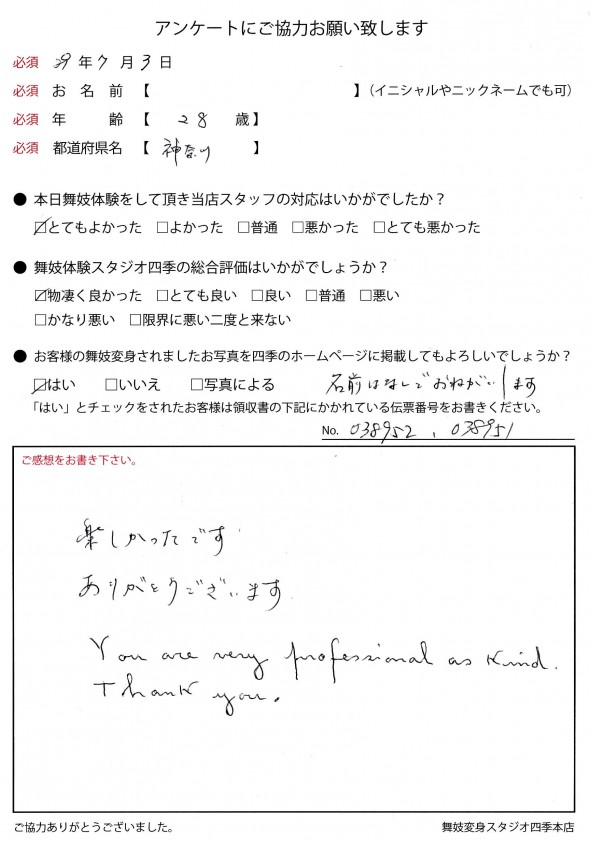 アンケートにご協力お願い致します
必須 29年7月3日
必須 お名前【 】(イニシャルやニックネームでも可)
必須 年齢【 28 歳】
必須 都道府県名【 神奈川 】
● 本日舞妓体験をして頂き当店スタッフの対応はいかがでしたか？
☑とてもよかった □よかった □普通 □悪かった □とても悪かった
● 舞妓体験スタジオ四季の総合評価はいかがでしょうか？
☑物凄く良かった □とても良い □良い □普通 □悪い
□かなり悪い □限界に悪い二度と来ない
● お客様の舞妓変身されましたお写真を四季のホームページに掲載してもよろしいでしょうか？
☑はい □いいえ □写真による 名前はなしでおねがいします
「はい」とチェックをされたお客様は領収書の下記にかかれている伝票番号をお書きください。
No. 038952 , 038951
ご感想をお書き下さい。
楽しかったです
ありがとうございます
You are very professional as kind.
Thank you.
ご協力ありがとうございました。 舞妓変身スタジオ四季本店